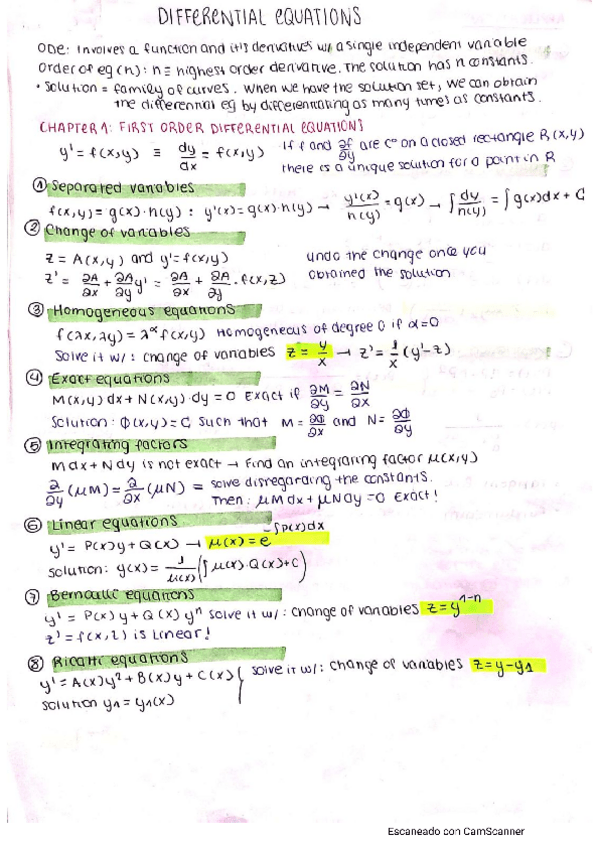 DIFFERENTIAL EQUATIONS
ODE: Involves a function and it's derivatives w/ a single independent variable
Order of eq (n): n ≡ highest order derivative. The solution has n constants.
• Solution = family of curves. When we have the solution set, we can obtain
the differential eq by differentiating as many times as constants.
CHAPTER 1: FIRST ORDER DIFFERENTIAL EQUATIONS
y' = f(x,y) ≡ dy/dx = f(x,y) If f and ∂f/∂y are C⁰ on a closed rectangle R(x,y)
there is a unique solution for a point in R
① Separated variables
f(x,y) = g(x)·h(y) : y'(x) = g(x)·h(y) → y'(x)/h(y) = g(x) → ∫dy/h(y) = ∫g(x)dx + C
② Change of variables
z = A(x,y) and y' = f(x,y) undo the change once you
z' = ∂A/∂x + ∂A/∂y y' = ∂A/∂x + ∂A/∂y · f(x,z) obtained the solution
③ Homogeneous equations
f(λx,λy) = λ^α f(x,y) Homogeneous of degree 0 if α=0
Solve it w/: change of variables z = y/x → z' = 1/x (y'-z)
④ Exact equations
M(x,y)dx + N(x,y)·dy = 0 Exact if ∂M/∂y = ∂N/∂x
Solution: Φ(x,y) = C such that M = ∂Φ/∂x and N = ∂Φ/∂y
⑤ Integrating factors
Mdx + Ndy is not exact → Find an integrating factor μ(x,y)
∂/∂y (μM) = ∂/∂x (μN) = solve disregarding the constants.
Then: μMdx + μNdy = 0 Exact!
⑥ Linear equations
y' = P(x)y + Q(x) → μ(x) = e^(-∫p(x)dx)
Solution: y(x) = 1/μ(x) (∫μ(x)·Q(x) + C)
⑦ Bernoulli equations
y' = P(x)y + Q(x)yⁿ solve it w/: change of variables z = y^(1-n)
z' = f(x,z) is Linear!
⑧ Ricatti equations
y' = A(x)y² + B(x)y + C(x) } solve it w/: change of variables z = y - y₁
solution y₁ = y₁(x)
Escaneado con CamScanner